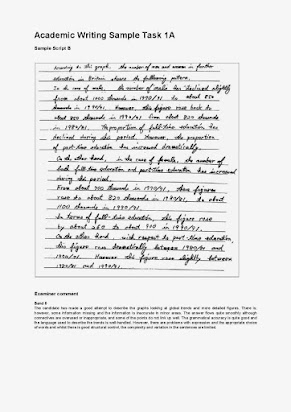 Academic Writing Sample Task 1A
Sample Script B
According to this graph, the number of men and women in further
education in Britain shows the following pattern.
In the case of male, the number of male has declined slightly
from about 1000 thousands in 1970/71 to about 850
thousands in 1990/91. However, this figure rose back to
about 850 thousands in 1990/91 from about 820 thousands
in 1980/81. The proportion of full-time education has
declined during this period. However, the proportion
of part-time education has increased dramatically.
On the other hand, in the case of female, the number of
both full-time education and part-time education has increased
during the period.
From about 700 thousands in 1970/71, these figures
rose to about 820 thousands in 1980/81, to about
1100 thousands in 1990/91.
In terms of full-time education, this figure rose
by about 260 to about 900 in 1990/91.
On the other hand, with respect to part-time education,
this figure rose dramatically between 1980/81 and
1990/91. However, this figure rose slightly between
1970/71 and 1980/81.
Examiner comment
Band 6
The candidate has made a good attempt to describe the graphs looking at global trends and more detailed figures. There is,
however, some information missing and the information is inaccurate in minor areas. The answer flows quite smoothly although
connectives are overused or inappropriate, and some of the points do not link up well. The grammatical accuracy is quite good and
the language used to describe the trends is well-handled. However, there are problems with expression and the appropriate choice
of words and whilst there is good structural control, the complexity and variation in the sentences are limited.